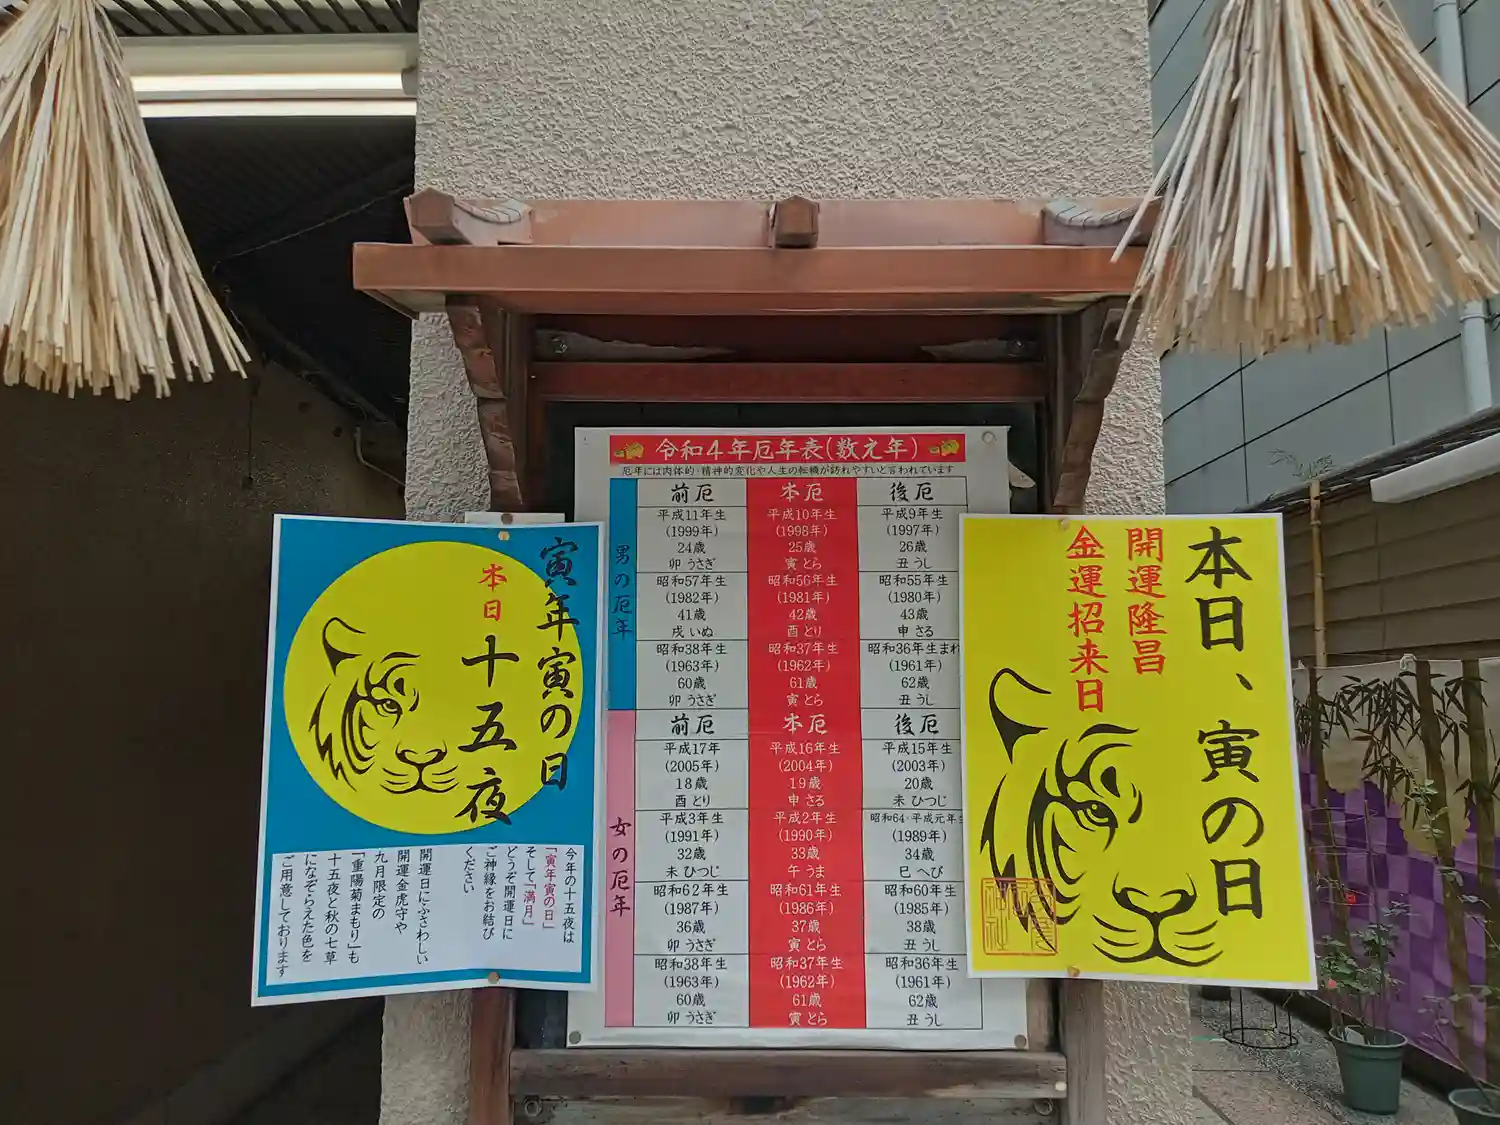 令和4年厄年表(数え年)
厄年には肉体的・精神的変化や人生の転機が訪れやすいと言われています
男の厄年
前厄 本厄 後厄
平成11年生 平成10年生 平成9年生
(1999年) (1998年) (1997年)
24歳 25歳 26歳
卯 うさぎ 寅 とら 丑 うし
昭和57年生 昭和56年生 昭和55年生
(1982年) (1981年) (1980年)
41歳 42歳 43歳
戌 いぬ 酉 とり 申 さる
昭和38年生 昭和37年生 昭和36年生まれ
(1963年) (1962年) (1961年)
60歳 61歳 62歳
卯 うさぎ 寅 とら 丑 うし
女の厄年
前厄 本厄 後厄
平成17年 平成16年生 平成15年生
(2005年) (2004年) (2003年)
18歳 19歳 20歳
酉 とり 申 さる 未 ひつじ
平成3年生 平成2年生 昭和64・平成元年生
(1991年) (1990年) (1989年)
32歳 33歳 34歳
未 ひつじ 午 うま 巳 へび
昭和62年生 昭和61年生 昭和60年生
(1987年) (1986年) (1985年)
36歳 37歳 38歳
卯 うさぎ 寅 とら 丑 うし
昭和38年生 昭和37年生 昭和36年生
(1963年) (1962年) (1961年)
60歳 61歳 62歳
卯 うさぎ 寅 とら 丑 うし
寅年寅の日
本日
十五夜
今年の十五夜は
「寅年寅の日」
そして「満月」
どうぞ開運日に
ご神縁をお結び
ください
開運日にふさわしい
開運金虎守や
九月限定の
「重陽菊まもり」も
十五夜と秋の七草
になぞらえた色を
ご用意しております
本日、寅の日
開運隆昌
金運招来日